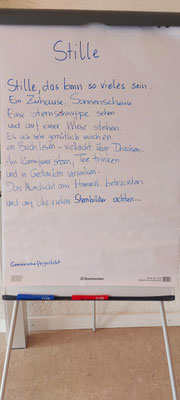 Stille
Stille, das kann so vieles sein.
Ein Zuhause. Sonnenschein.
Eine Sternschnuppe sehn
und auf einer Wiese stehen.
Es sich sehr gemütlich machen
ein Buch lesen - vielleicht über Drachen.
Am Kamin sitzen, Tee trinken
und in Gedanken versinken.
Das Mondlicht am Himmel betrachten
und auf die vielen Sternbilder achten...
Gemeinschaftsgedicht